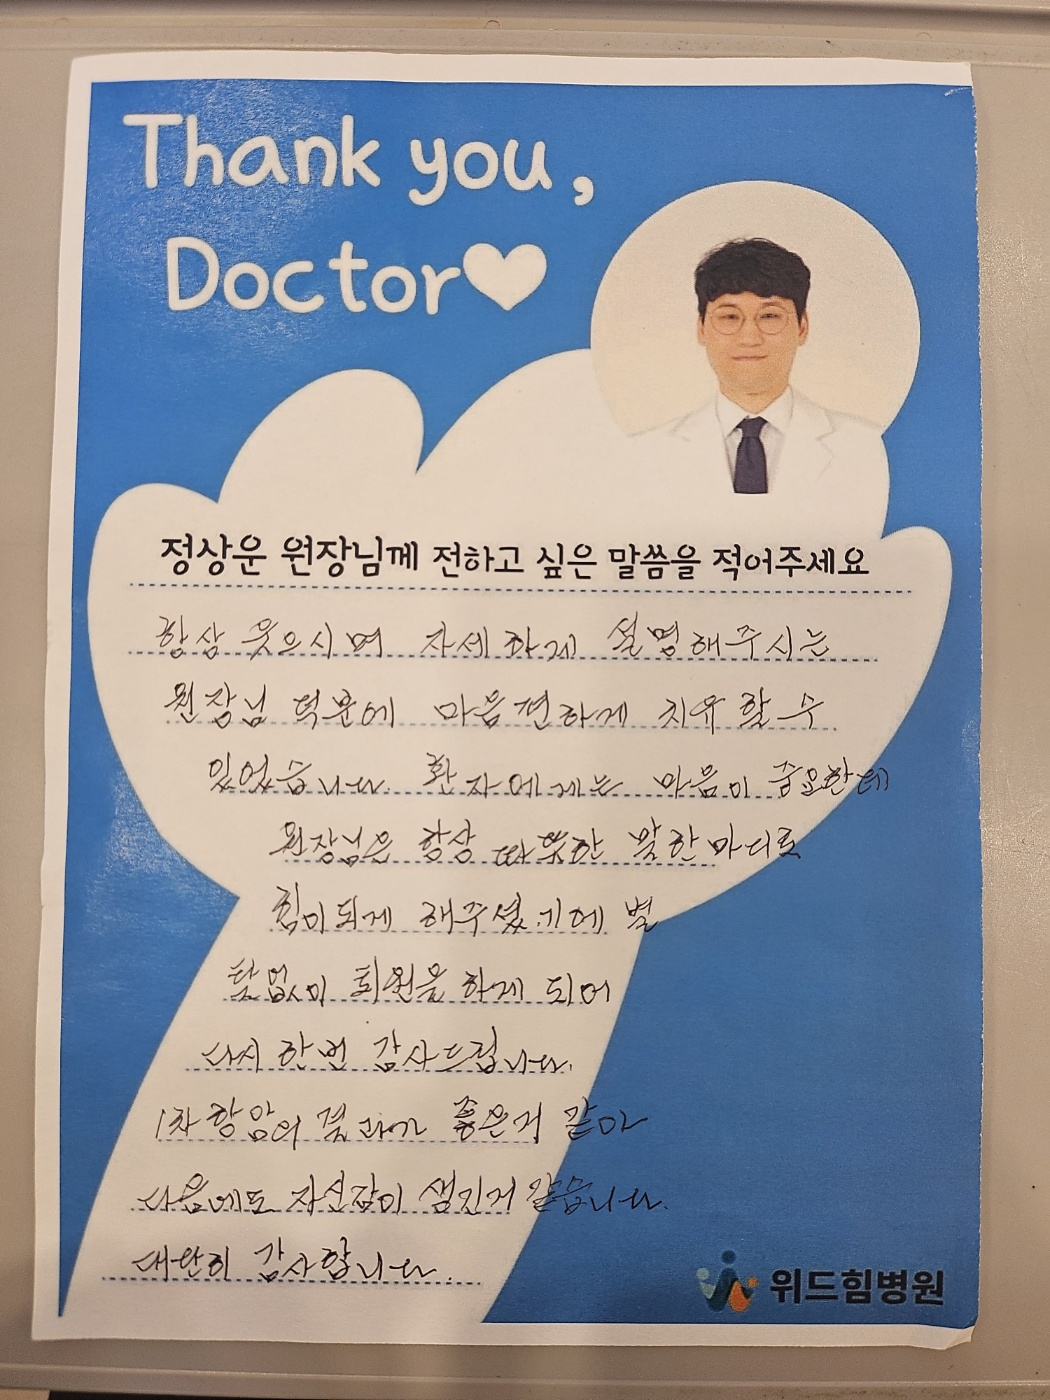 Thank you,
Doctor
정상운 원장님께 전하고 싶은 말씀을 적어주세요
항상 웃으시며 자세하게 설명해주시는
원장님 덕분에 마음편하게 치유할 수
있었습니다. 환자에게는 마음이 중요한데
원장님은 항상 따뜻한 말한마디로
힘이되게 해주셨기에 별
탈없이 퇴원을 하게 되어
다시 한번 감사드립니다.
1차 항암의 결과가 좋은거 같아
다음에도 자신감이 생긴거 같습니다.
대단히 감사합니다.
위드힘병원